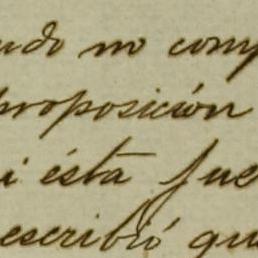 udo no comp
proposición
i ésta fue
escribió qu